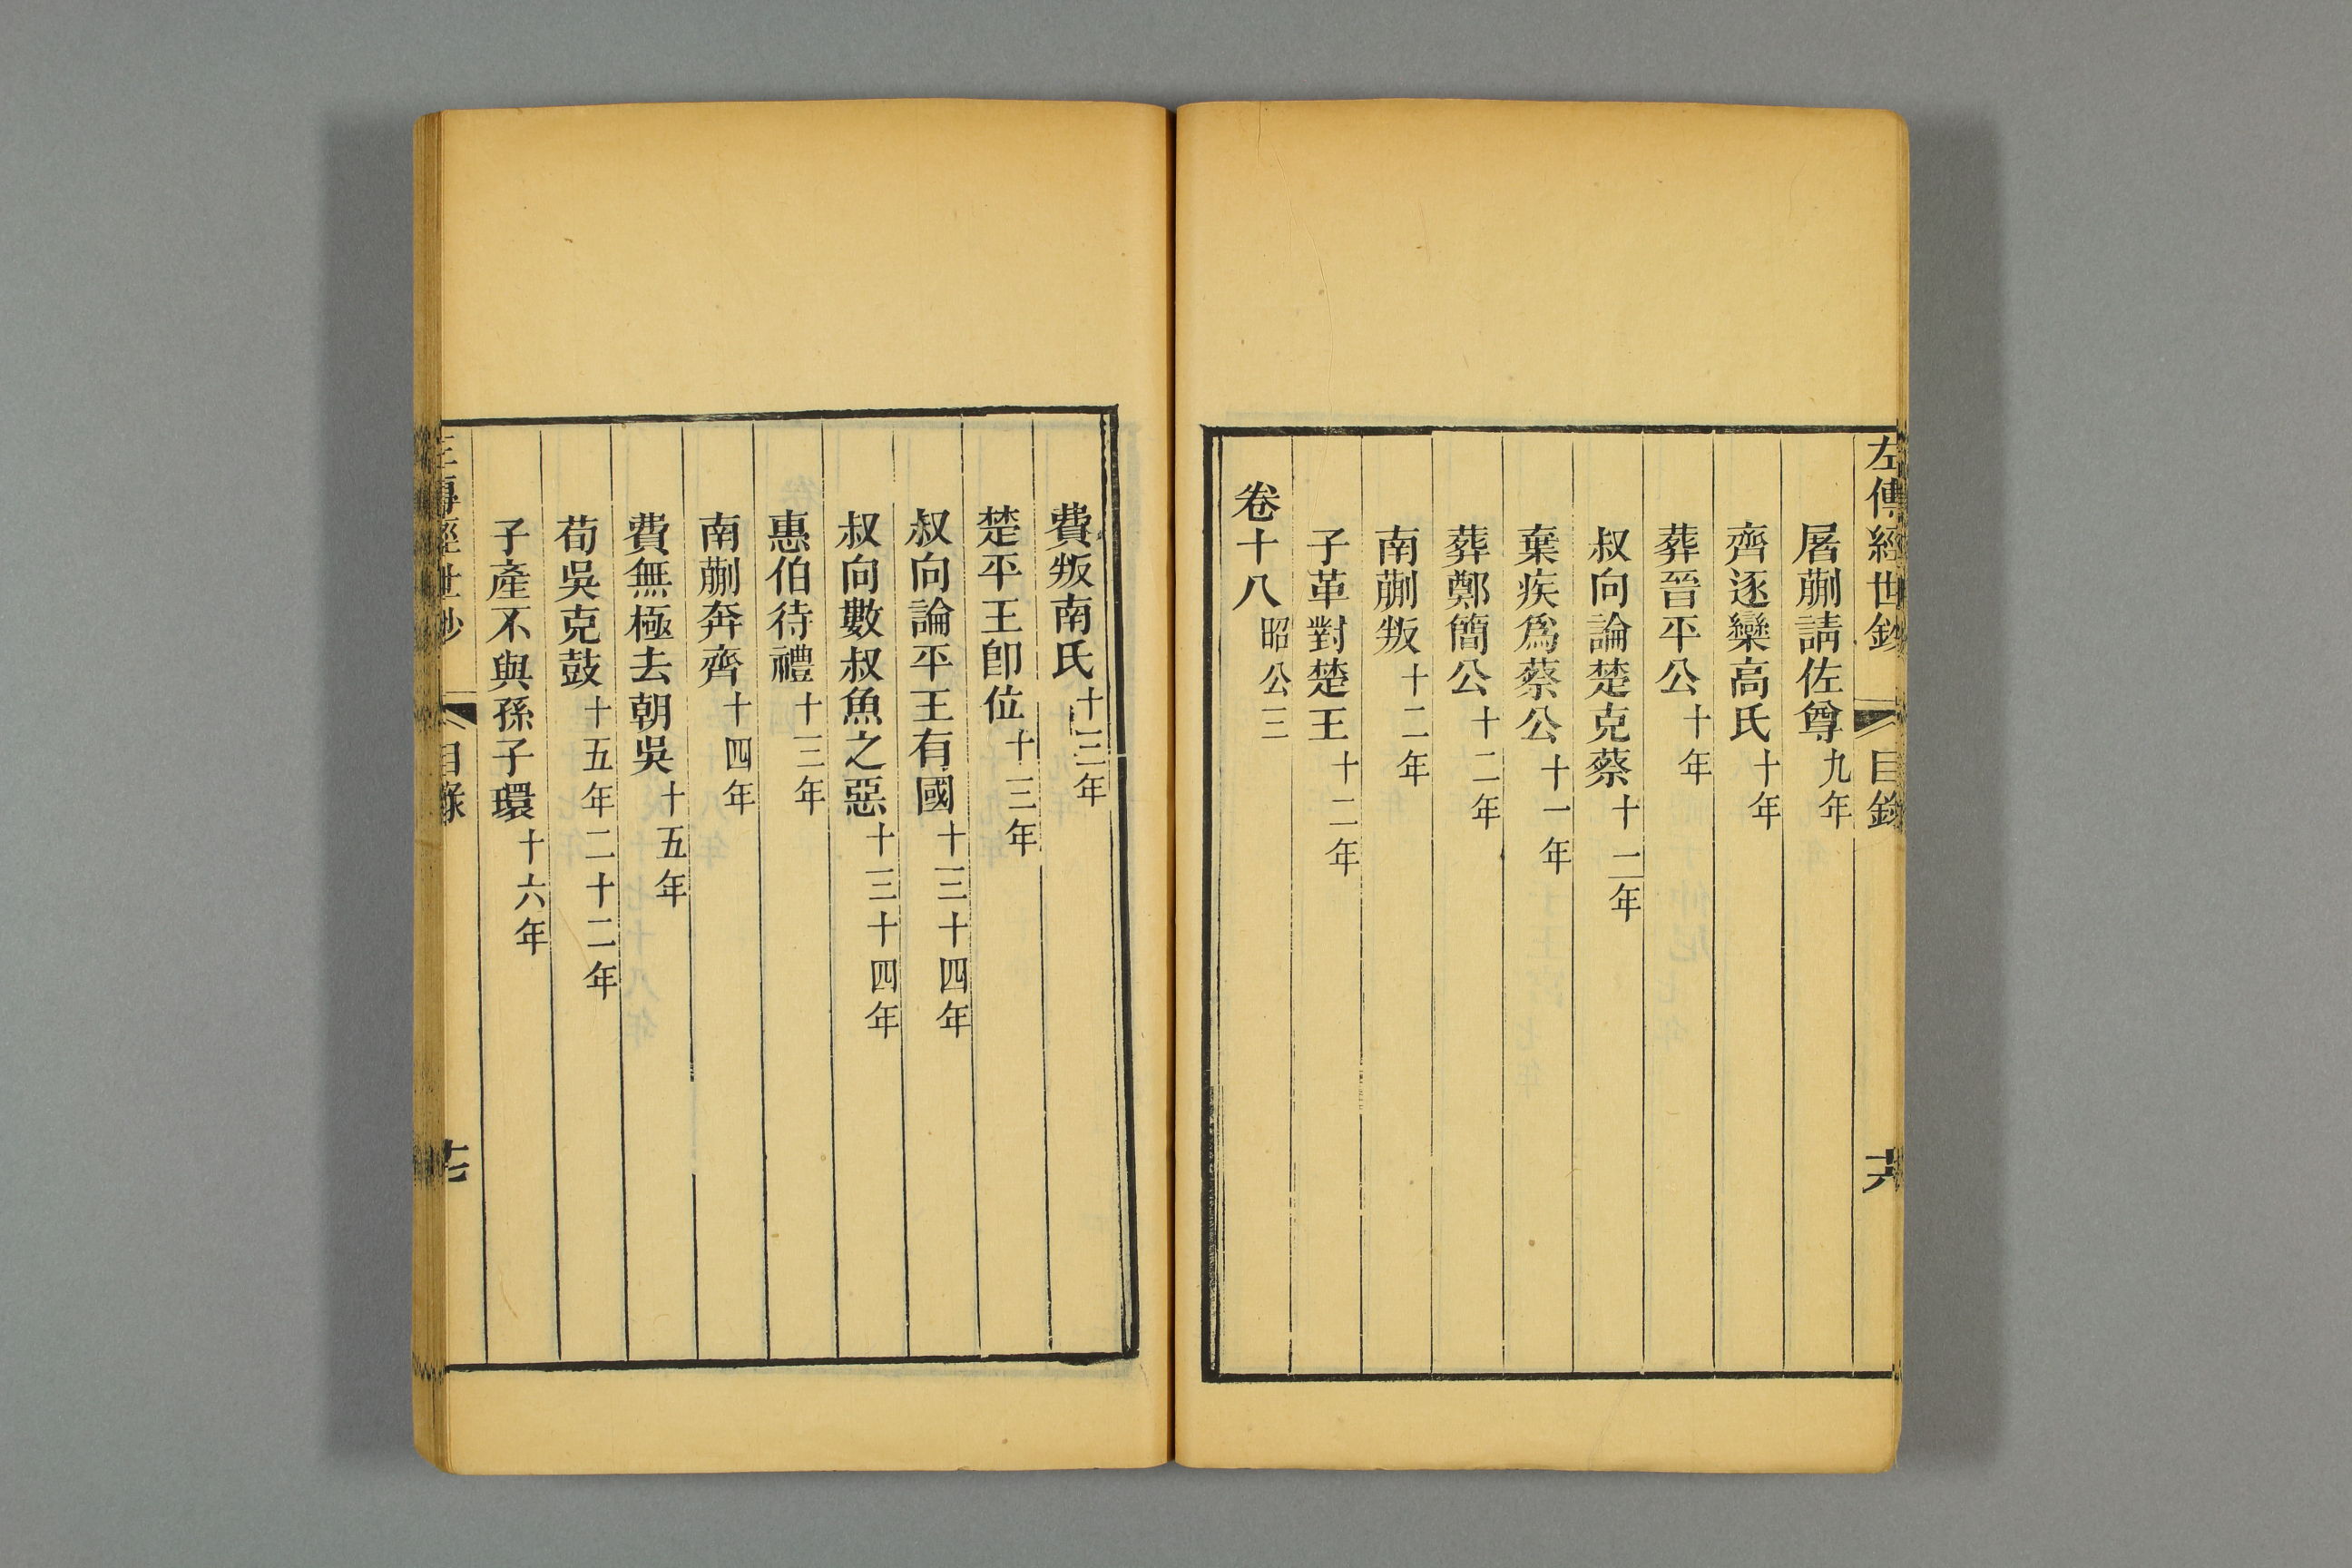 左傳經世鈔 目錄 十六
屠蒯請佐尊九年
齊逐欒高氏十年
葬晉平公十年
叔向論楚克蔡十一年
棄疾爲蔡公十一年
葬鄭簡公十二年
南蒯叛十二年
子革對楚王十二年
卷十八昭公三
費叛南氏十三年
楚平王卽位十三年
叔向論平王有國十三十四年
叔向數叔魚之惡十三十四年
惠伯待禮十三年
南蒯奔齊十四年
費無極去朝吳十五年
荀吳克鼓十五年二十二年
子產不與孫子環十六年
左傳經世鈔 目錄 十七